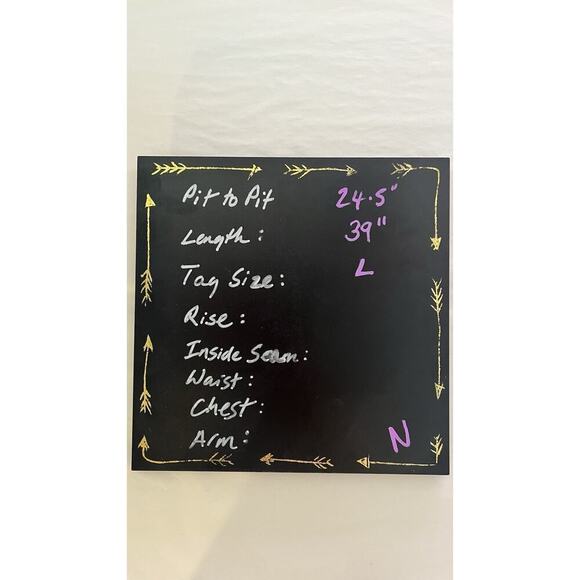 Pit to Pit 24.5"
Length: 39"
Tag Size: L
Rise:
Inside Seam:
Waist:
Chest:
Arm: N